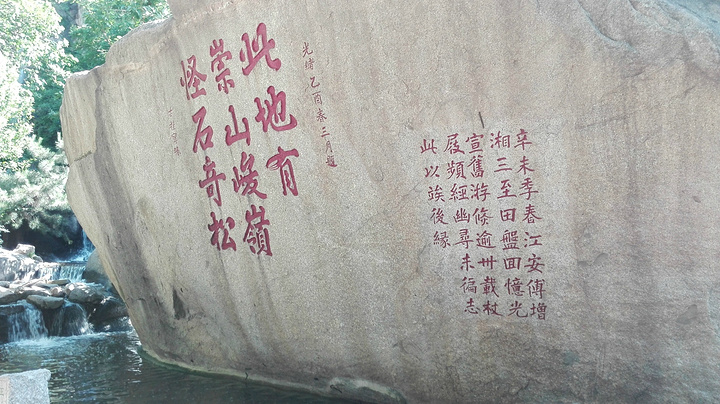 辛未季春江安傅增
湘三至田盤回憶光
宣舊游倏逾卅載杖
屐頻經幽尋未徧志
此以竢後緣
光緒乙酉春三月題
此地有
崇山峻嶺
怪石奇松